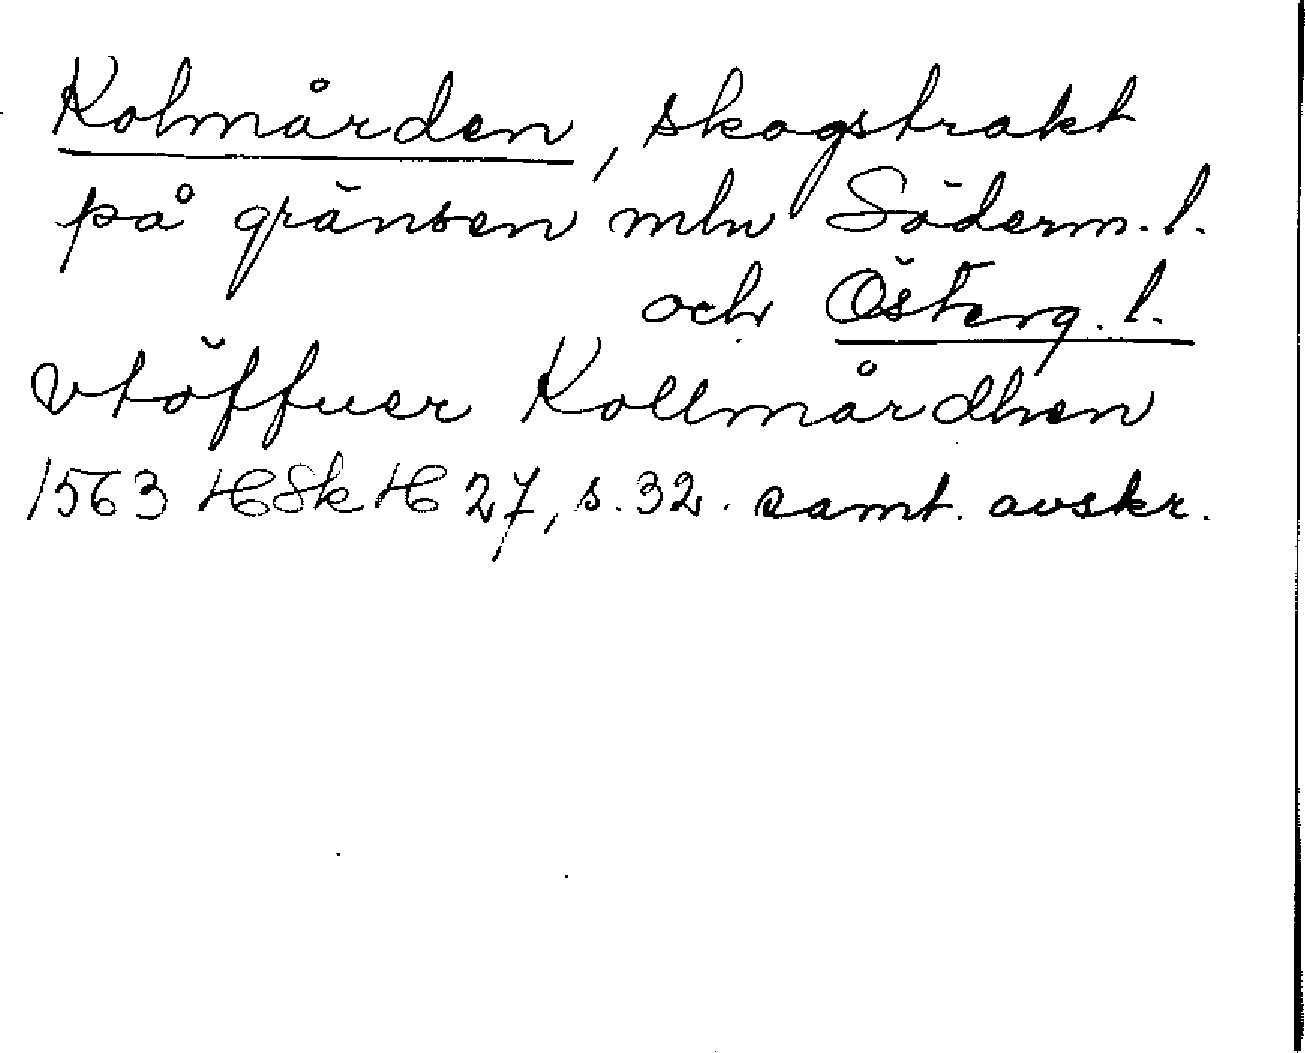 Kolmården, skogstrakt
på gränsen mln Söderm. l.
och Österg. l.
vtöffuer Kollmårdhen
1563 HSkH 27, s. 32. samt. avskr.